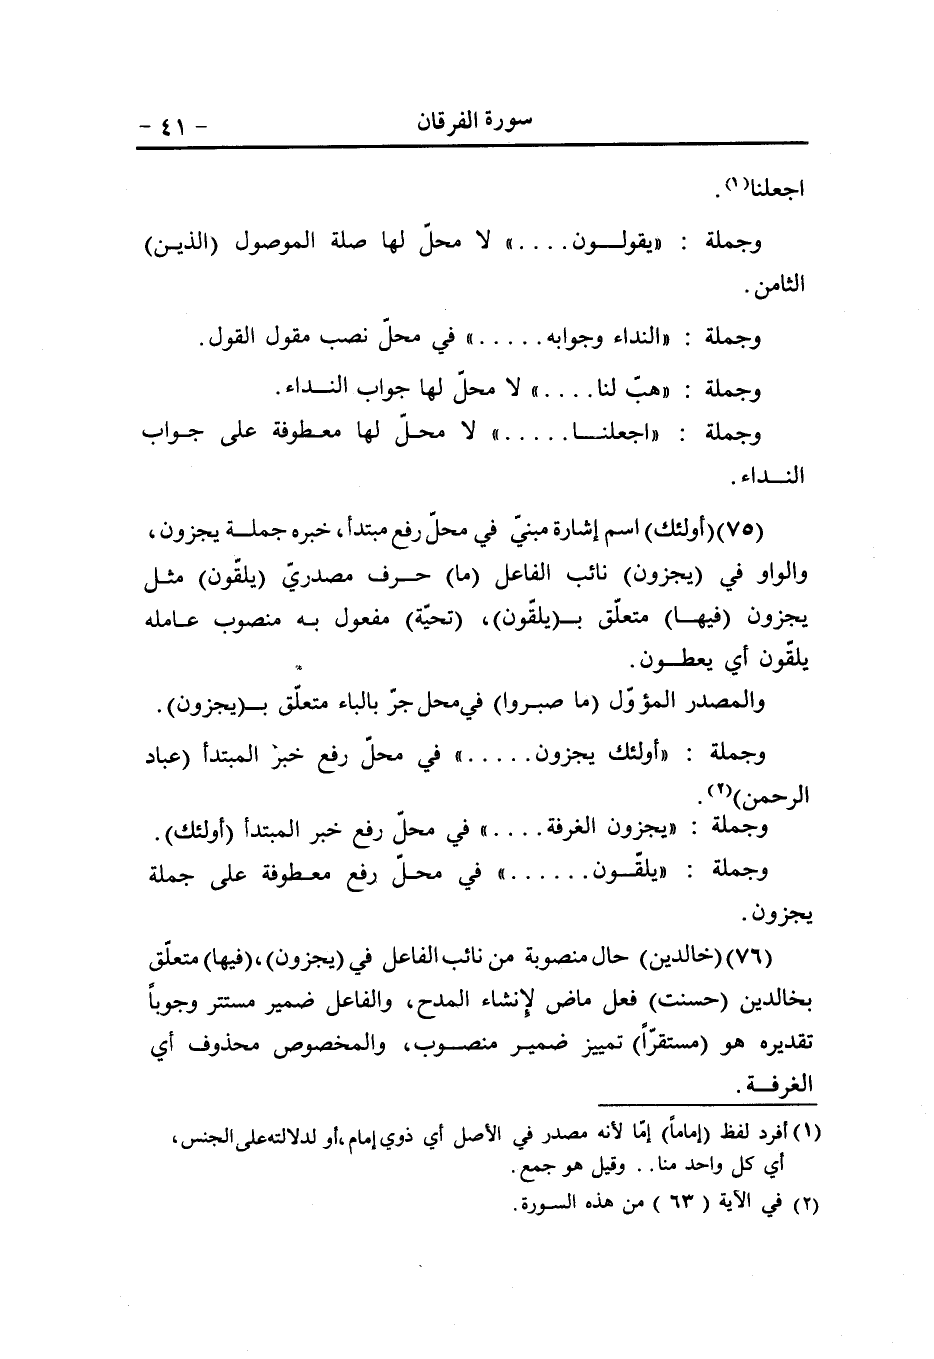 سورة الفرقان - ٤١ -
اجعلنا(١).
وجملة : «يقولـــون....» لا محلّ لها صلة الموصول (الذيـن)
الثامن.
وجملة : «النداء وجوابه.....» في محلّ نصب مقول القول.
وجملة : «هبّ لنا....» لا محلّ لها جواب النـــداء.
وجملة : «اجعلنـــا.....» لا محـلّ لها معـطوفة على جـواب
النـــداء.
(٧٥)(أولئك) اسم إشارة مبنيّ في محلّ رفع مبتدأ، خبره جملـــة يجزون،
والواو في (يجزون) نائب الفاعل (ما) حـرف مصدريّ (يلقّون) مثـل
يجزون (فيهـــا) متعلّق بـ(يلقّون)، (تحيّة) مفعول بـه منصوب عـامله
يلقّون أي يعطـــون.
والمصدر المؤوّل (ما صبـروا) في محل جرّ بالباء متعلّق بـ(يجزون).
وجملة : «أولئك يجزون.....» في محلّ رفع خبر المبتدأ (عباد
الرحمن)(٢).
وجملة : «يجزون الغرفة....» في محلّ رفع خبر المبتدأ (أولئك).
وجملة : «يلقّـــون......» في محـلّ رفع معـطوفة على جملة
يجزون.
(٧٦)(خالدين) حال منصوبة من نائب الفاعل في (يجزون)،(فيها) متعلّق
بخالدين (حسنت) فعل ماض لإنشاء المدح، والفاعل ضمير مستتر وجوباً
تقديره هو (مستقرّاً) تمييز ضميـر منصـــوب، والمخصوص محذوف أي
الغرفـــة.
(١) أفرد لفظ (إماماً) إمّا لأنه مصدر في الأصل أي ذوي إمام،أو لدلالته على الجنس،
أي كل واحد منا.. وقيل هو جمع.
(٢) في الآية ( ٦٣ ) من هذه السـورة.